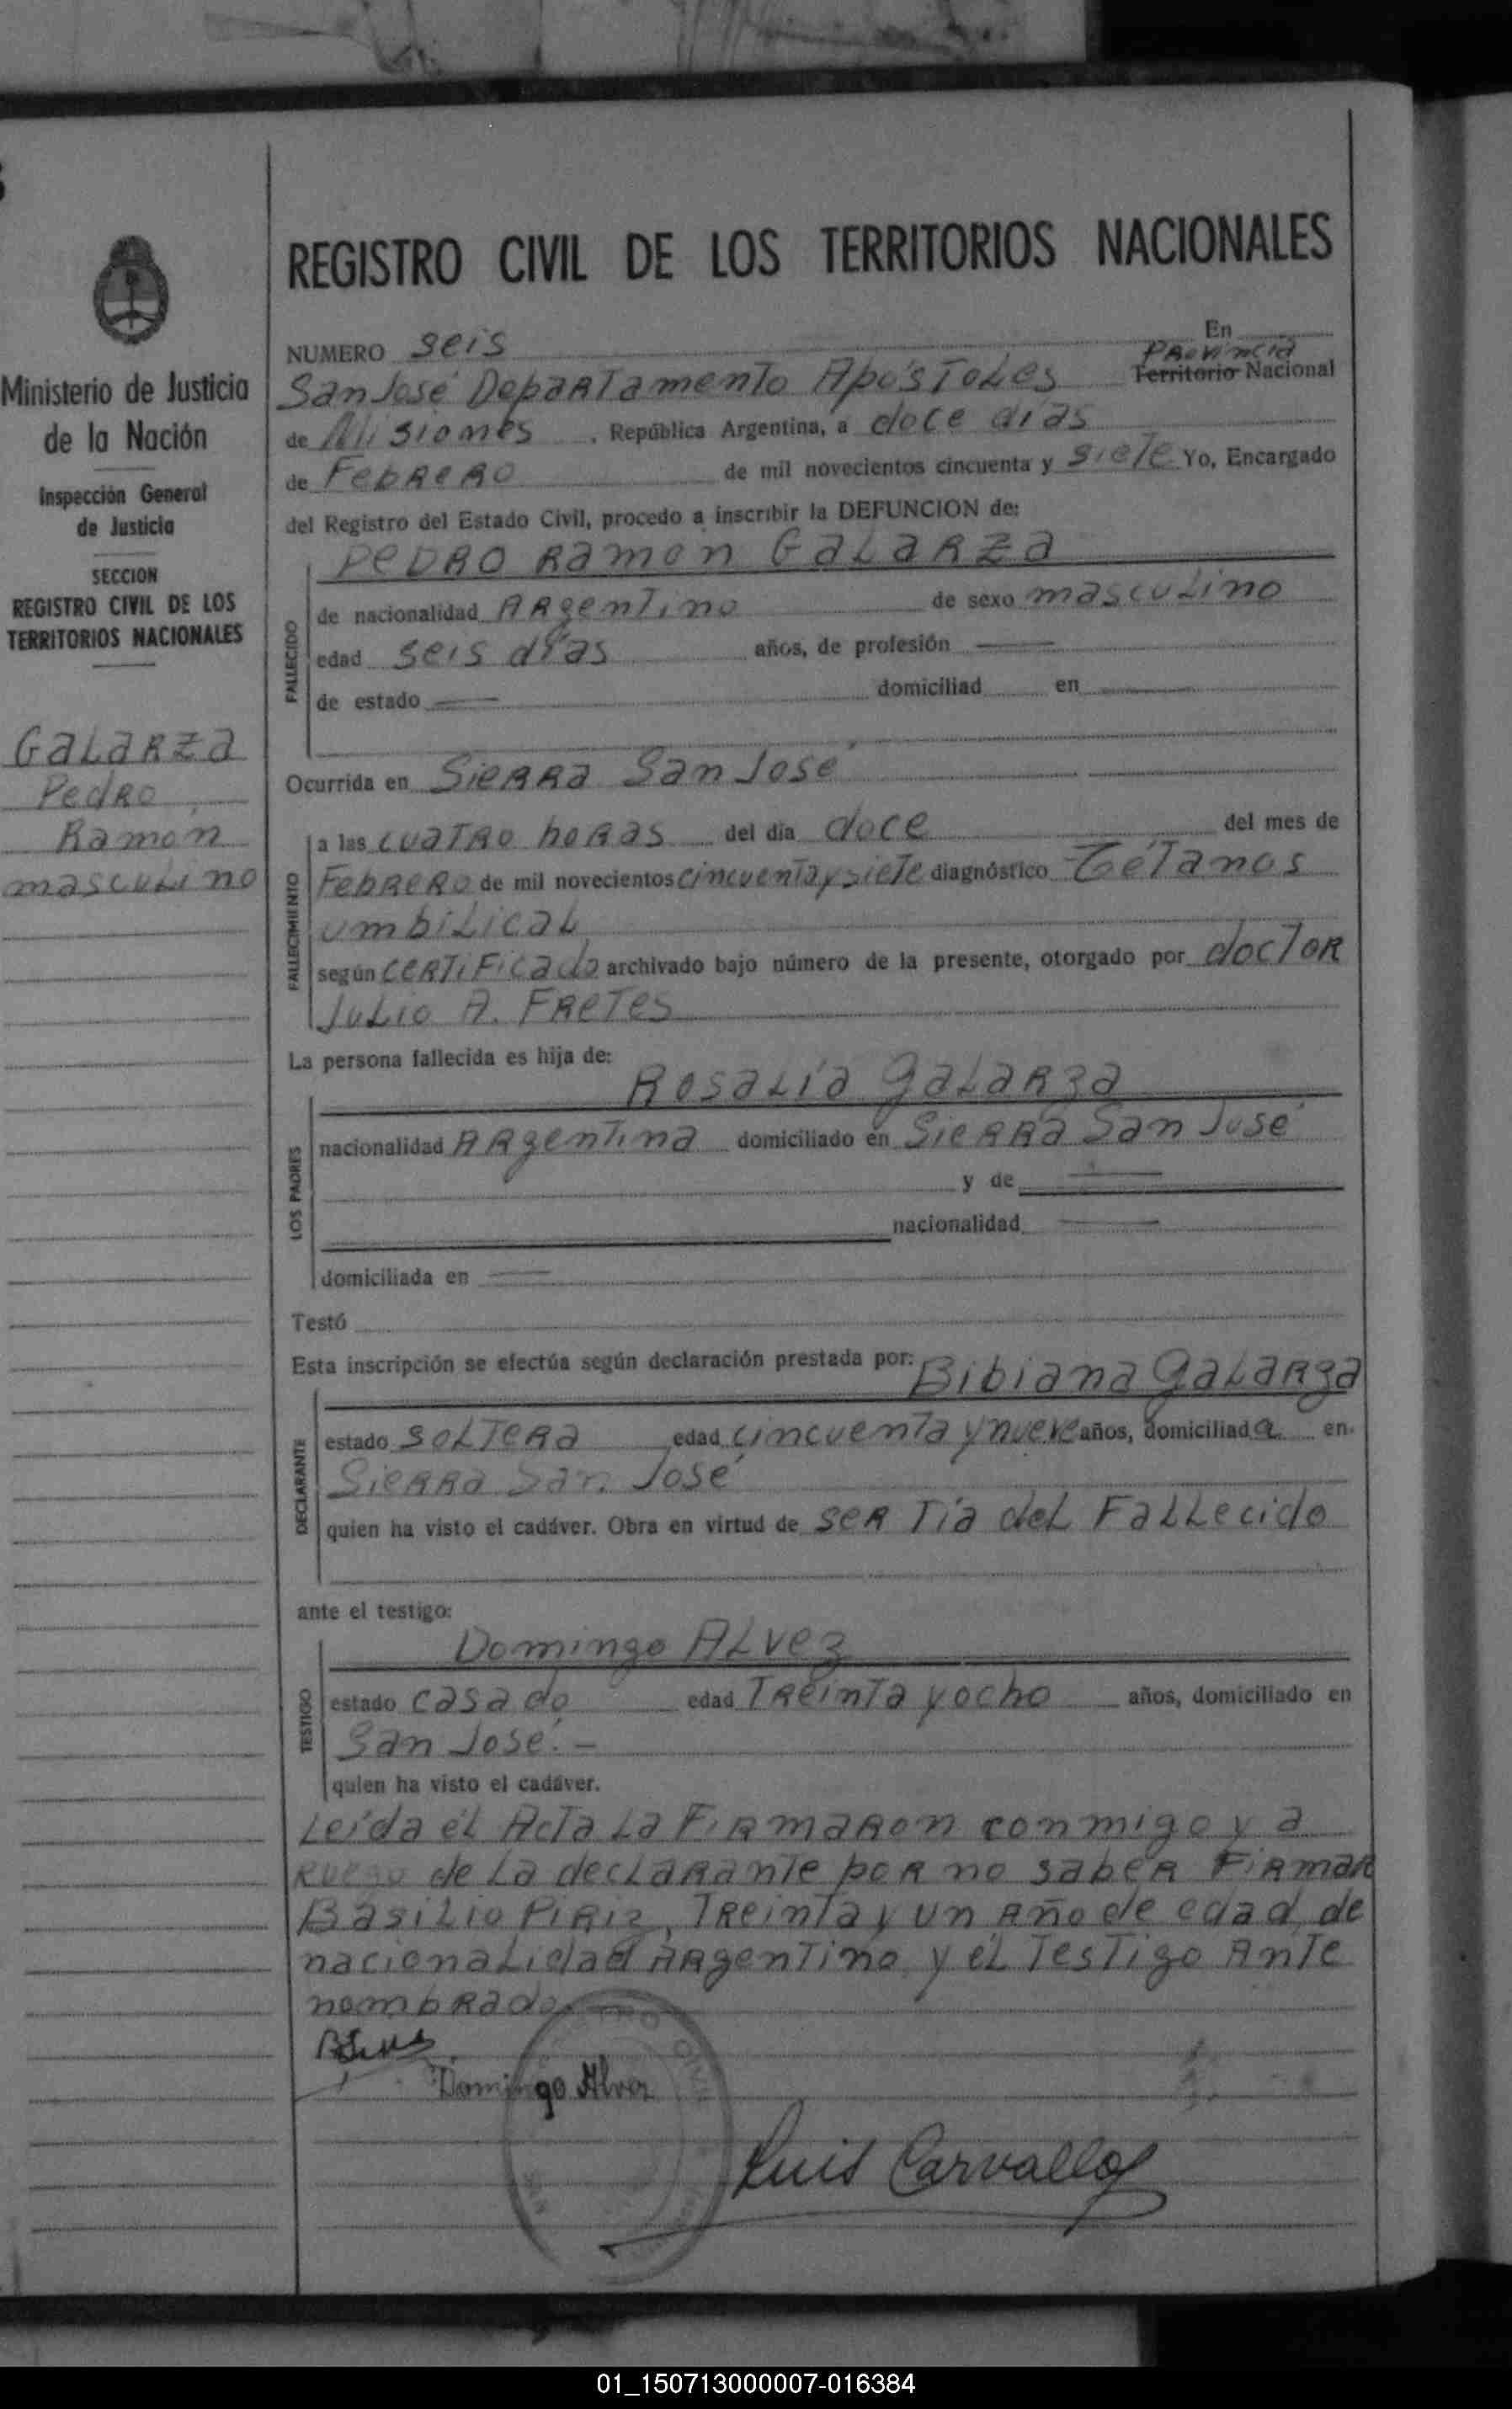 REGISTRO CIVIL DE LOS TERRITORIOS NACIONALES
Ministerio de Justicia
de la Nación
Inspección General
de Justicia
SECCION
REGISTRO CIVIL DE LOS
TERRITORIOS NACIONALES
GaLaRZa
PedRo
Ramón
mascuLino
NUMERO seis En
San José DepaRTamenTo ApósToLes PRovincia Territorio Nacional
de Misiones , República Argentina, a doce dias
de FebReRo de mil novecientos cincuenta y sieTe Yo, Encargado
del Registro del Estado Civil, procedo a inscribir la DEFUNCION de:
PeDRO Ramon GaLaRZa
FALLECIDO
de nacionalidad ARgenTino de sexo mascuLino
edad seis días años, de profesión
de estado domiciliad en
Ocurrida en SieRRa San José
FALLECIMIENTO
a las cuaTRo hoRas del día doce del mes de
FebReRo de mil novecientos cincuenTa y sieTe diagnóstico TéTanos
umbiLicaL
según ceRTiFicado archivado bajo número de la presente, otorgado por docToR
JuLio A. FReTes
La persona fallecida es hija de:
RosaLía gaLaRza
LOS PADRES
nacionalidad ARgenTina domiciliado en SieRRa San José
y de
nacionalidad
domiciliada en
Testó
Esta inscripción se efectúa según declaración prestada por: Bibiana gaLaRza
DECLARANTE
estado soLTeRa edad cincuenTa y nueve años, domiciliada en
SieRRa San José
quien ha visto el cadáver. Obra en virtud de seR Tía deL FaLLecido
ante el testigo:
Domingo ALvez
TESTIGO
estado casado edad TReinTa y ocho años, domiciliado en
San José.-
quien ha visto el cadáver.
Leída éL AcTa La FiRmaRon conmigo y a
Ruego de La decLaRanTe poR no sabeR FiRmaR
BasiLio PiRiz, TReinTa y un Año de edad, de
nacionaLidad ARgenTino y éL TesTigo AnTe
nombRado
Domingo Alvez
Luis Carvallo
01_150713000007-016384